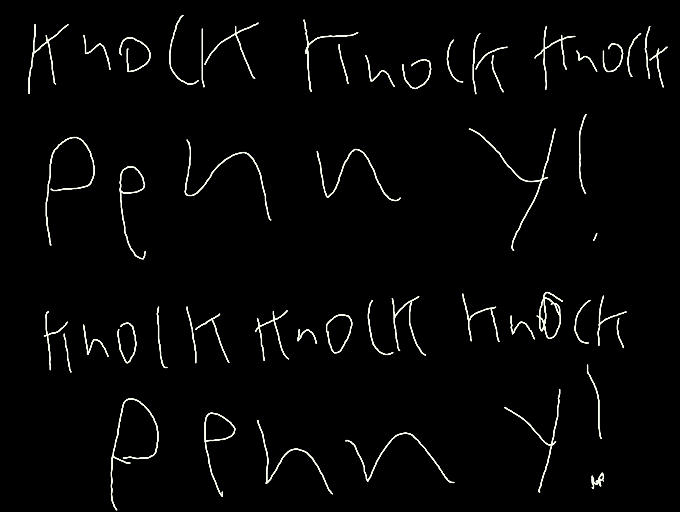 Knock Knock Knock
Penny!
Knock Knock Knock
Penny!